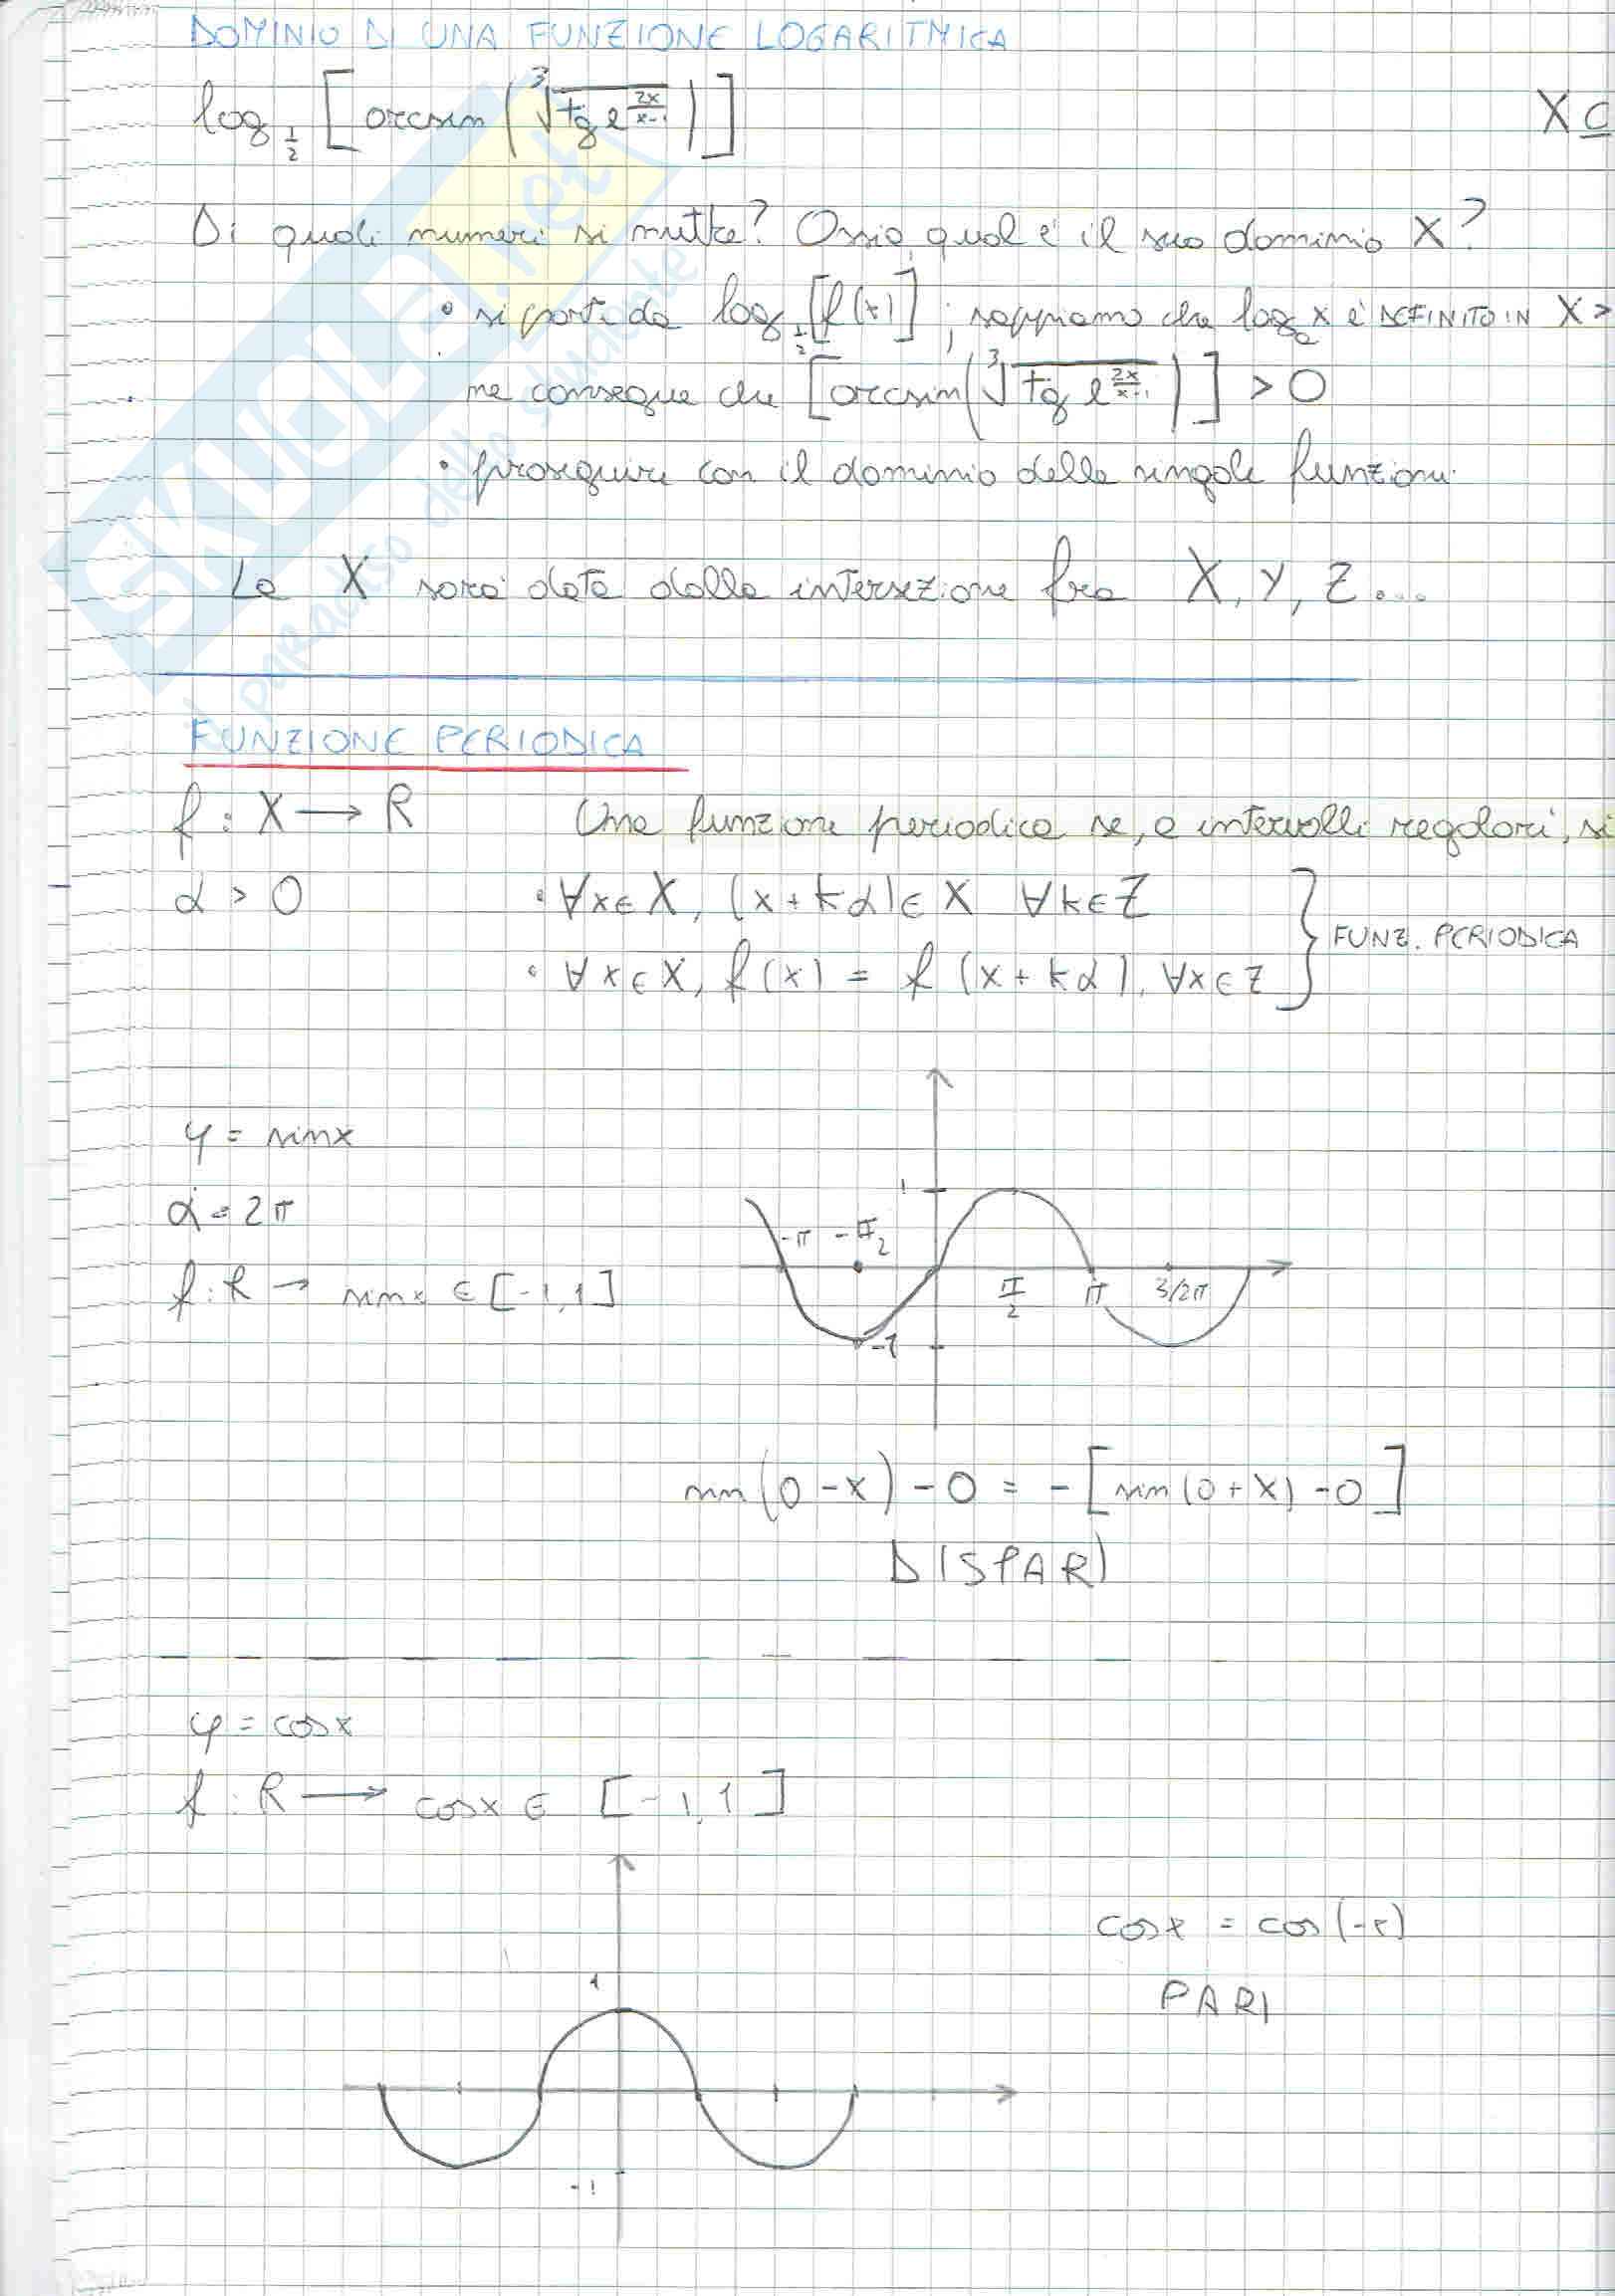 DOMINIO DI UNA FUNZIONE LOGARITMICA
log 1/2 [arcsin(∛(tg e^(2x/(x-1))))] X ⊆
Di quali numeri si nutre? Ossia, qual è il suo dominio X?
• si parte da log 1/2 [f(x)] ; sappiamo che log a x è DEFINITO IN X >
ne consegue che [arcsin(∛(tg e^(2x/(x-1))))] > 0
• proseguire con il dominio delle singole funzioni.
La X sarà data dalla intersezione fra X, Y, Z...
FUNZIONE PERIODICA
f : X → R Una funzione periodica se, a intervalli regolari, si
α > 0 • ∀x∈X, (x + kα) ∈ X ∀k∈Z
• ∀x∈X, f(x) = f(x + kα), ∀x∈Z } FUNZ. PERIODICA
y = sinx
α = 2π
f : R → sinx ∈ [-1,1]
1
-π -π/2
π/2 π 3/2π
-1
sin(0-x) - 0 = - [sin(0+x) - 0]
DISPARI
y = cosx
f : R → cosx ∈ [-1,1]
cosx = cos(-x)
PARI
1
-1
SKUOLA.net
il paradiso dello studente